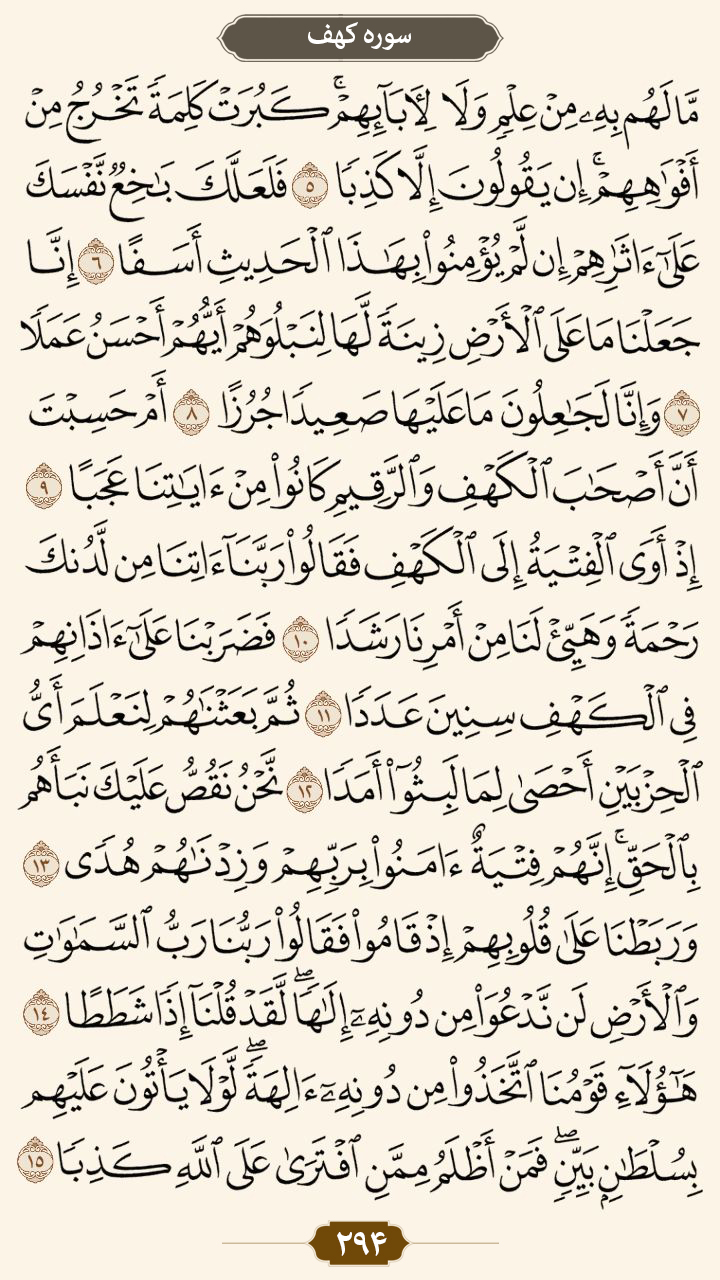 سوره کهف
مَّا لَهُم بِهِۦ مِنْ عِلْمٍ وَلَا لِأَبَآئِهِمْۚ كَبُرَتْ كَلِمَةً تَخْرُجُ مِنْ
أَفْوَٰهِهِمْۚ إِن يَقُولُونَ إِلَّا كَذِبًا ٥ فَلَعَلَّكَ بَـٰخِعٌ نَّفْسَكَ
عَلَىٰٓ ءَاثَـٰرِهِمْ إِن لَّمْ يُؤْمِنُوا۟ بِهَـٰذَا ٱلْحَدِيثِ أَسَفًا ٦ إِنَّا
جَعَلْنَا مَا عَلَى ٱلْأَرْضِ زِينَةً لَّهَا لِنَبْلُوَهُمْ أَيُّهُمْ أَحْسَنُ عَمَلًا
٧ وَإِنَّا لَجَـٰعِلُونَ مَا عَلَيْهَا صَعِيدًا جُرُزًا ٨ أَمْ حَسِبْتَ
أَنَّ أَصْحَـٰبَ ٱلْكَهْفِ وَٱلرَّقِيمِ كَانُوا۟ مِنْ ءَايَـٰتِنَا عَجَبًا ٩
إِذْ أَوَى ٱلْفِتْيَةُ إِلَى ٱلْكَهْفِ فَقَالُوا۟ رَبَّنَآ ءَاتِنَا مِن لَّدُنكَ
رَحْمَةً وَهَيِّئْ لَنَا مِنْ أَمْرِنَا رَشَدًا ١٠ فَضَرَبْنَا عَلَىٰٓ ءَاذَانِهِمْ
فِى ٱلْكَهْفِ سِنِينَ عَدَدًا ١١ ثُمَّ بَعَثْنَـٰهُمْ لِنَعْلَمَ أَىُّ
ٱلْحِزْبَيْنِ أَحْصَىٰ لِمَا لَبِثُوٓا۟ أَمَدًا ١٢ نَّحْنُ نَقُصُّ عَلَيْكَ نَبَأَهُم
بِٱلْحَقِّۚ إِنَّهُمْ فِتْيَةٌ ءَامَنُوا۟ بِرَبِّهِمْ وَزِدْنَـٰهُمْ هُدًى ١٣
وَرَبَطْنَا عَلَىٰ قُلُوبِهِمْ إِذْ قَامُوا۟ فَقَالُوا۟ رَبُّنَا رَبُّ ٱلسَّمَـٰوَٰتِ
وَٱلْأَرْضِ لَن نَّدْعُوَا۟ مِن دُونِهِۦٓ إِلَـٰهًاۖ لَّقَدْ قُلْنَآ إِذًا شَطَطًا ١٤
هَـٰٓؤُلَآءِ قَوْمُنَا ٱتَّخَذُوا۟ مِن دُونِهِۦٓ ءَالِهَةًۖ لَّوْلَا يَأْتُونَ عَلَيْهِم
بِسُلْطَـٰنٍۭ بَيِّنٍۖ فَمَنْ أَظْلَمُ مِمَّنِ ٱفْتَرَىٰ عَلَى ٱللَّهِ كَذِبًا ١٥
۲۹۴